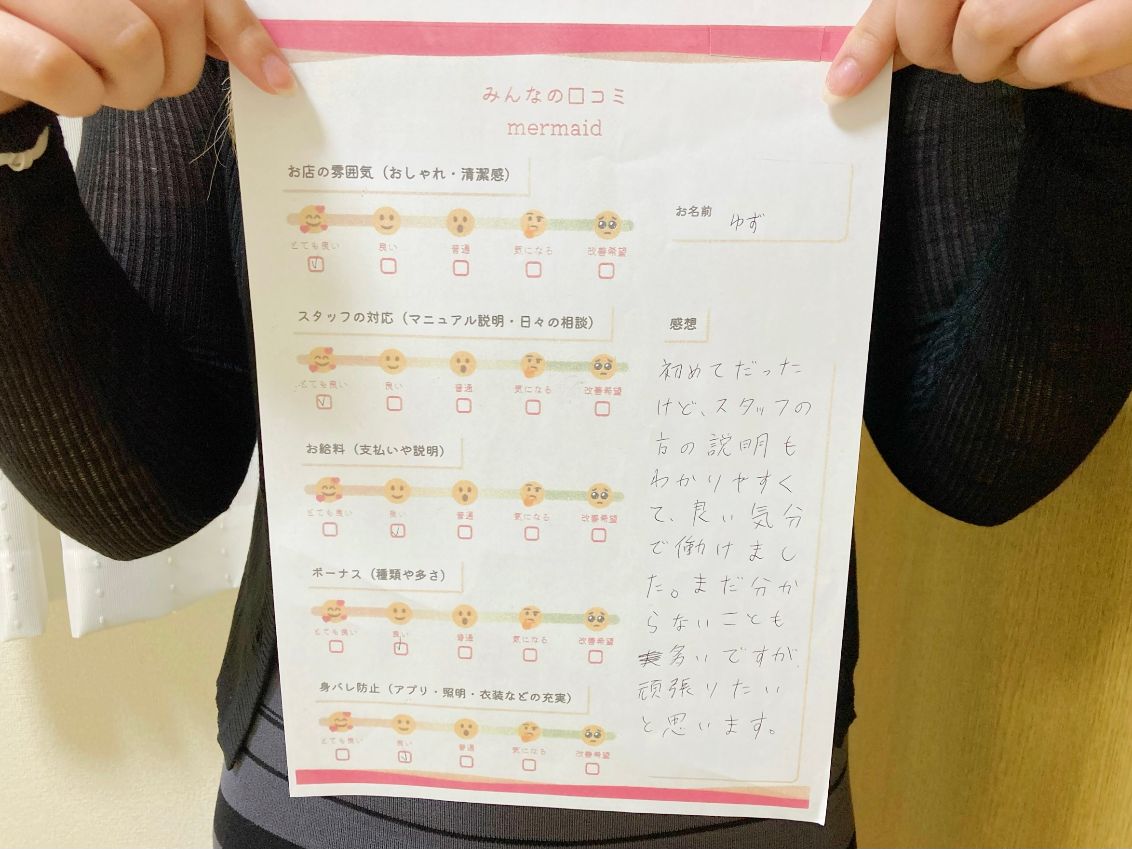 みんなの口コミ
mermaid
お店の雰囲気（おしゃれ・清潔感）
とても良い 良い 普通 気になる 改善希望
スタッフの対応（マニュアル説明・日々の相談）
とても良い 良い 普通 気になる 改善希望
お給料（支払いや説明）
とても良い 良い 普通 気になる 改善希望
ボーナス（種類や多さ）
とても良い 良い 普通 気になる 改善希望
身バレ防止（アプリ・照明・衣装などの充実）
とても良い 良い 普通 気になる 改善希望
お名前 ゆず
感想
初めてだった
けど、スタッフの
方の説明も
わかりやすく
て、良い気分
で働けまし
た。まだ分か
らないことも
多いですが、
頑張りたい
と思います。